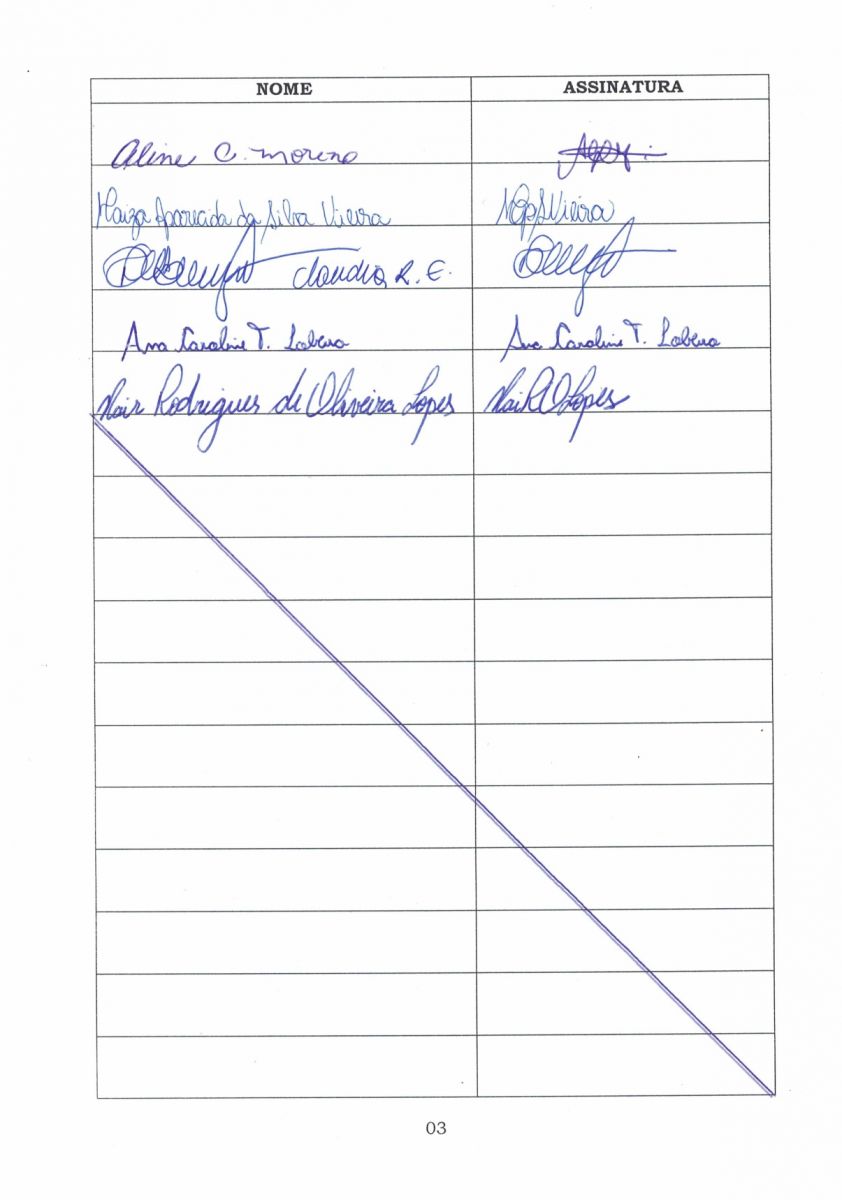 NOME ASSINATURA
Aline C. Moreno
Maiza Aparecida da Silva Vieira MApSVieira
Claudia R. E.
Ana Caroline T. Ana Caroline T.
Nair Rodrigues de Oliveira Lopes NairROLopes
03